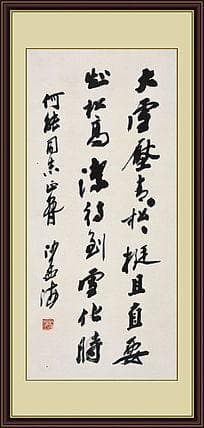 大雪壓青〻松〻挺且直要
知松高潔待到雪化時
同志正 沙孟海